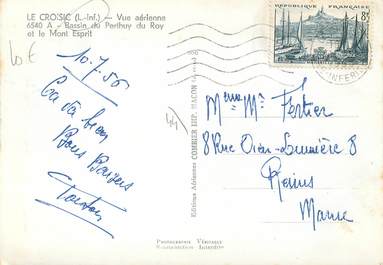 LE CROISIC (L.-Inf.) — Vue aérienne
6540 A - Bassin du Perthuy du Roy
et le Mont Esprit
10 €
10.7.56
Ca va bien
Bons Baisers
Editions Aériennes COMBIER IMP. MACON
REPUBLIQUE FRANÇAISE
8F
44
Mme Mr Fertier
8 Rue Dieu-Lumière 8
Reims
Marne
Photographie Véritable
Reproduction Interdite